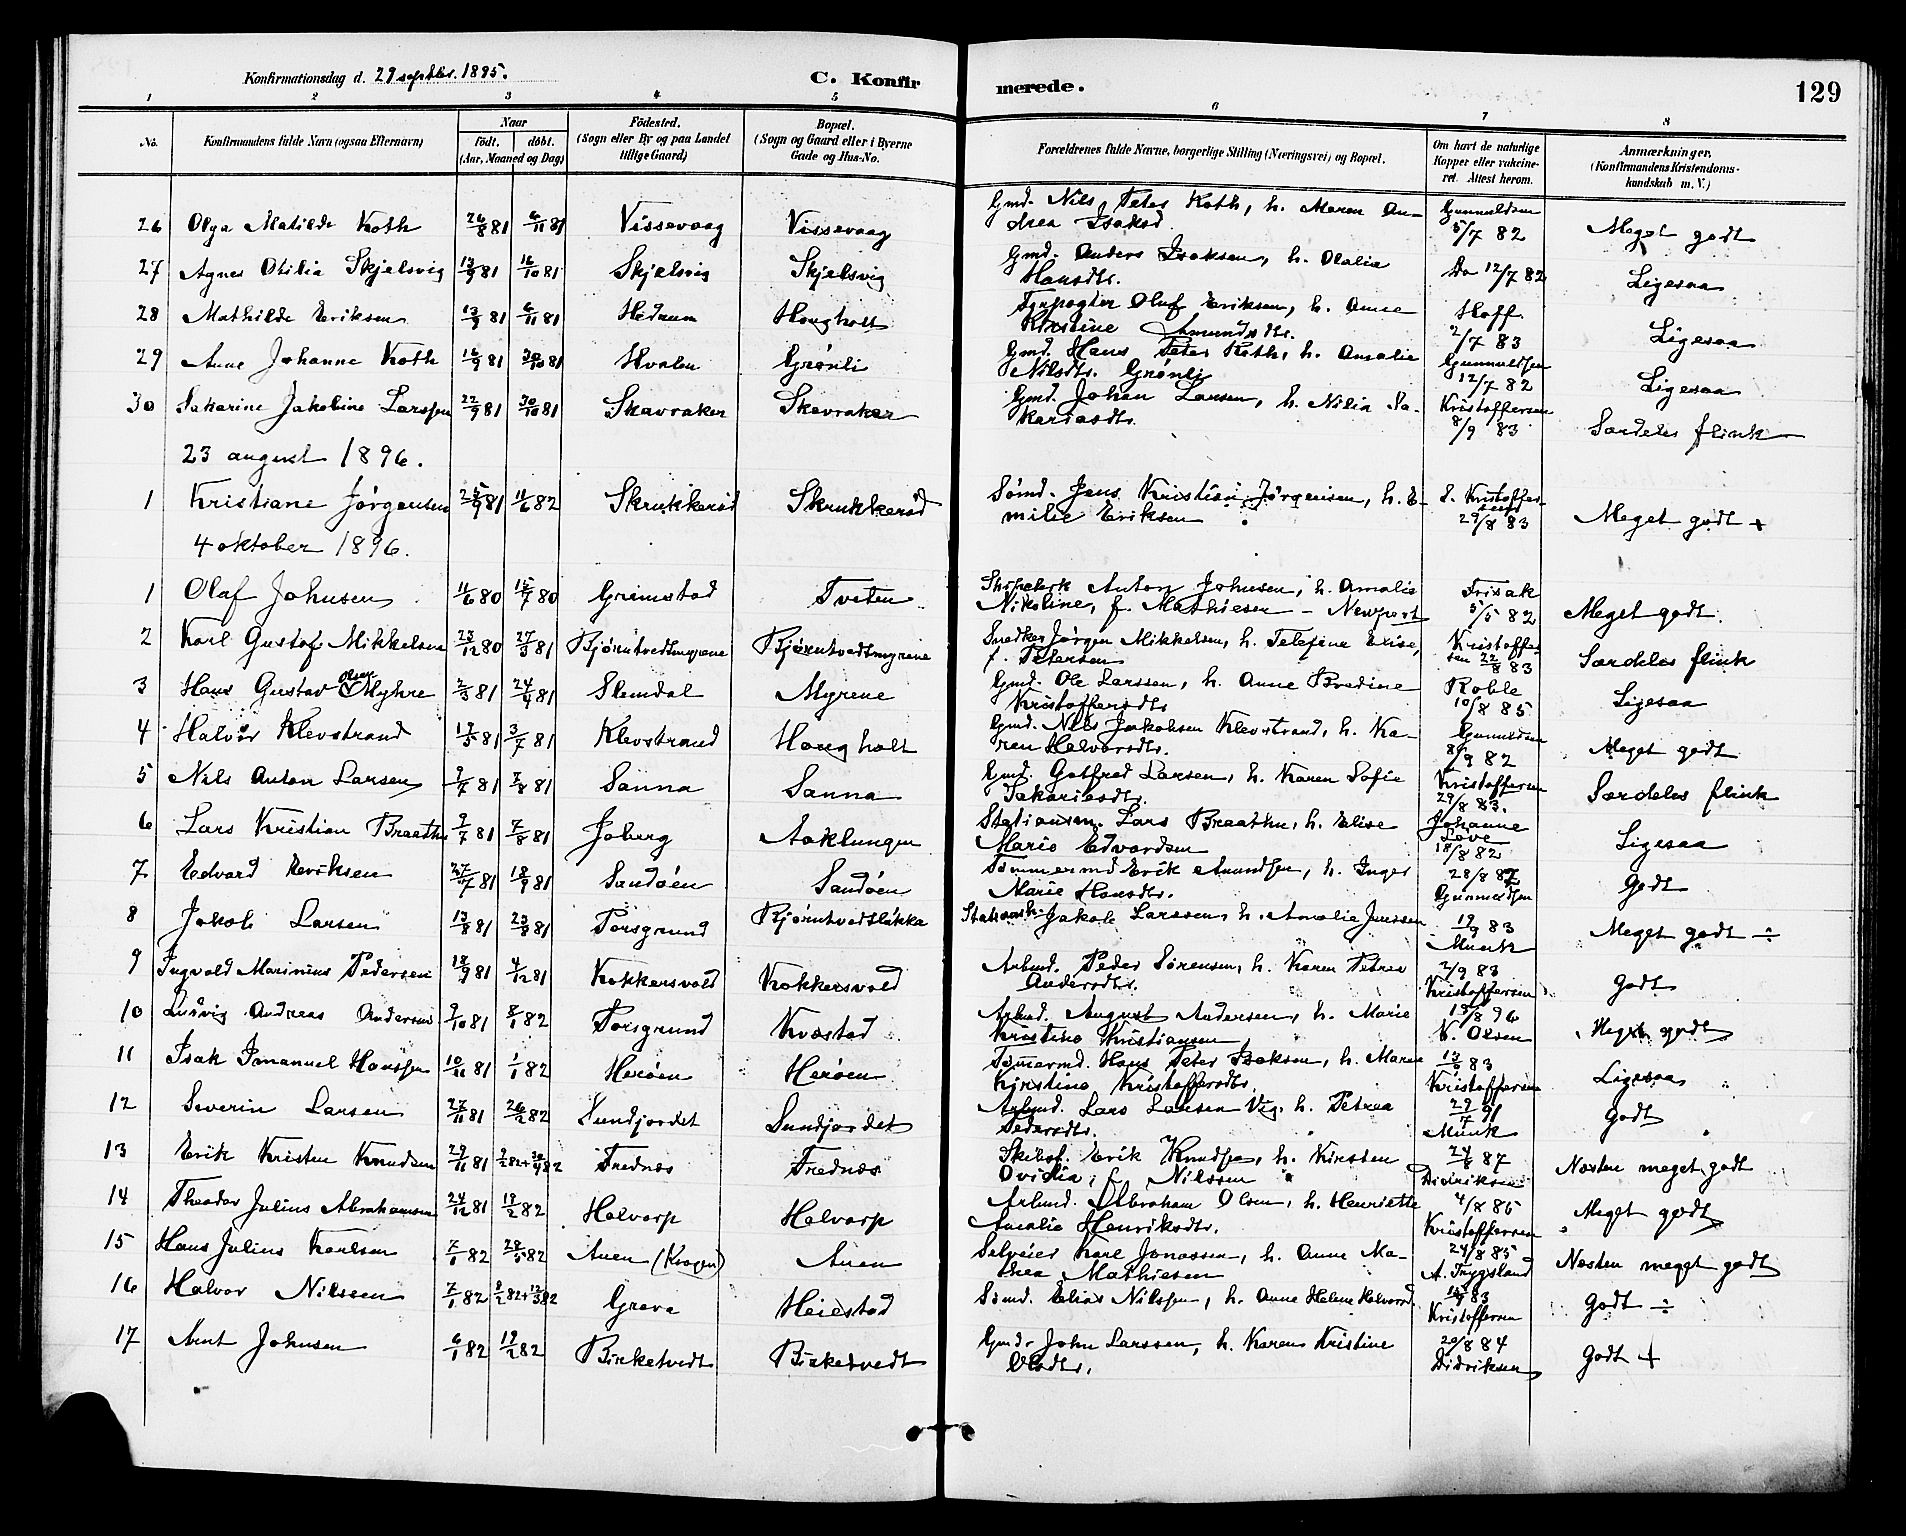 Konfirmationsdag d. 29 septbr. 1895.
C. Konfirmerede.
129
1 2 3 4 5 6 7 8
No. Konfirmandens fulde Navn (ogsaa Efternavn) Naar født. døbt. (Aar, Maaned og Dag) Fødested. (Sogn eller By og paa Landet tillige Gaard) Bopæl. (Sogn og Gaard eller i Byerne Gade og Hus-No. Forældrenes fulde Navne, borgerlige Stilling (Næringsvei) og Bopæl. Om havt de naturlige Kopper eller vakcineret. Attest herom. Anmærkninger. (Konfirmandens Kristendomskundskab m. V.)
26 Olga Matilde Roth 26/8 81 6/11 81 Vissevaag Vissevaag Gmd. Nils Peter Roth, h. Maren Andrea Isaksd. Gunnuldsen 5/7 82 Meget godt
27 Agnes Otilia Skjelsvig 13/9 81 16/10 81 Skjelsvig Skjelsvig Gmd. Anders Isaksen, h. Olalia Hansdtr. Do 12/7 82 Ligesaa
28 Mathilde Eriksen 13/9 81 6/11 81 Hedrum Hougholt Oluf Eriksen, h. Anne Kristine Amundsdtr. Hoff 2/7 83 Ligesaa
29 Anne Johanne Roth 16/9 81 30/10 81 Hvalen Grønli Gmd. Hans Peter Roth, h. Amalie Nilsdtr. Grønli Gunnuldsen 12/7 82 Ligesaa
30 Sakarine Jakobine Larssen 22/9 81 30/10 81 Skavraker Skavraker Gmd. Johan Larsen, h. Nilia Sakariasdtr. Kristoffersen 8/9 83 Særdeles flink
23 august 1896.
1 Kristiane Jørgensen 25/9 81 11/6 82 Skrukkerød Skrukkerød Sømd. Jens Kristian Jørgensen, h. Emilie Eriksen S. Kristoffersen 29/8 83 Meget godt +
4 oktober 1896.
1 Olaf Johnsen 11/6 80 15/7 80 Grimstad Tveten Anton Johnsen, h. Amalie Nikoline, f. Mathiesen – Newport Frisak 5/5 82 Meget godt.
2 Karl Gustof Mikkelsen 23/12 80 27/3 81 Bjørntvedtmyrene Bjørntvedtmyrene Snedker Jørgen Mikkelsen, h. Elise, f. Petersen Kristoffersen 22/8 83 Særdeles flink
3 Hans Gustav Olsen Myhre 2/3 81 24/4 81 Slemdal Myrene Gmd. Ole Larssen, h. Anne Bredine Kristoffersdtr. 10/8 85 Ligesaa
4 Halvor Klevstrand 17/5 81 3/7 81 Klevstrand Hougholt Gmd. Nils Jakobsen Klevstrand, h. Karen Halvorsdtr. Gunnuldsen 8/9 82 Meget godt
5 Nils Anton Larsen 9/7 81 7/8 81 Sanna Sanna Gmd. Gotfred Larsen, h. Karen Sofie Sakariasdtr. Kristoffersen 29/8 83. Særdeles flink
6 Lars Kristian Braathen 9/7 81 7/8 81 Joberg Aaklungen Stationsm. Lars Braathen, h. Elise Marie Edvardsen Johanne Love 18/8 82 Ligesaa
7 Edvard Eriksen 27/7 81 18/9 81 Sandøen Sandøen Tømmermd Erik Amundsen, h. Inger Marie Hansdtr. 28/8 82 Gunnuldsen Godt
8 Jakob Larsen 13/8 81 23/8 81 Porsgrund Bjørntvedtløkka Jakob Larssen, h. Amalie Jenssen 19/9 83 Munk Meget godt ÷
9 Ingvald Marinius Pedersen 18/9 81 4/12 81 Kokkersvold Kokkersvold Arbmd. Peder Sørensen, h. Karen Petrea Andersdtr. 2/9 83 Kristoffersen Godt
10 Ludvig Andreas Andersen 9/10 81 8/1 82 Porsgrund Kvæstad Arbmd. August Andersen, h. Marie Kristine Kristiansen 15/8 96 K. Olsen Meget godt
11 Isak Imanuel Hanssen 10/11 81 1/1 82 Herøen Herøen Tømmermd. Hans Peter Isaksen, h. Maren Kirstine Kristoffersdtr. 83 Kristoffersen Ligesaa
12 Severin Larsen 27/11 81 26/2 82 Sundjordet Sundjordet Arbmd. Lars Larsen Vig, h. Petrea Pedersdtr. 29/7 91 Munk Godt
13 Erik Kristen Knudsen 29/11 81 Frednes Frednes Erik Knudsen, h. Kirsten Ovidia, f. Nilssen 24/8 87 Didriksen Næsten meget godt
14 Theodor Julius Abrahamsen 24/12 81 19/2 82 Halvarp Halvarp Arbmd. Abraham Olsen, h. Henriette Amalie Henriksdtr. 4/8 85 Kristoffersen Meget godt
15 Hans Julius Karlsen 7/1 82 28/5 82 Auen (Kragerø) Auen Selveier Karl Jonassen, h. Anne Mathea Mathiesen 24/8 85 A. Trygsland Næsten meget godt
16 Halvor Nilssen 7/1 82 Grava Heiestad Sømd. Elias Nilssen, h. Anne Helene Halvorsd. 83 Kristoffersen Godt ÷
17 Arnt Johnsen 6/1 82 19/2 82 Birketvedt Birketvedt Gmd. John Larssen, h. Karen Kristine Olsdtr. 20/8 84 Didriksen Godt +